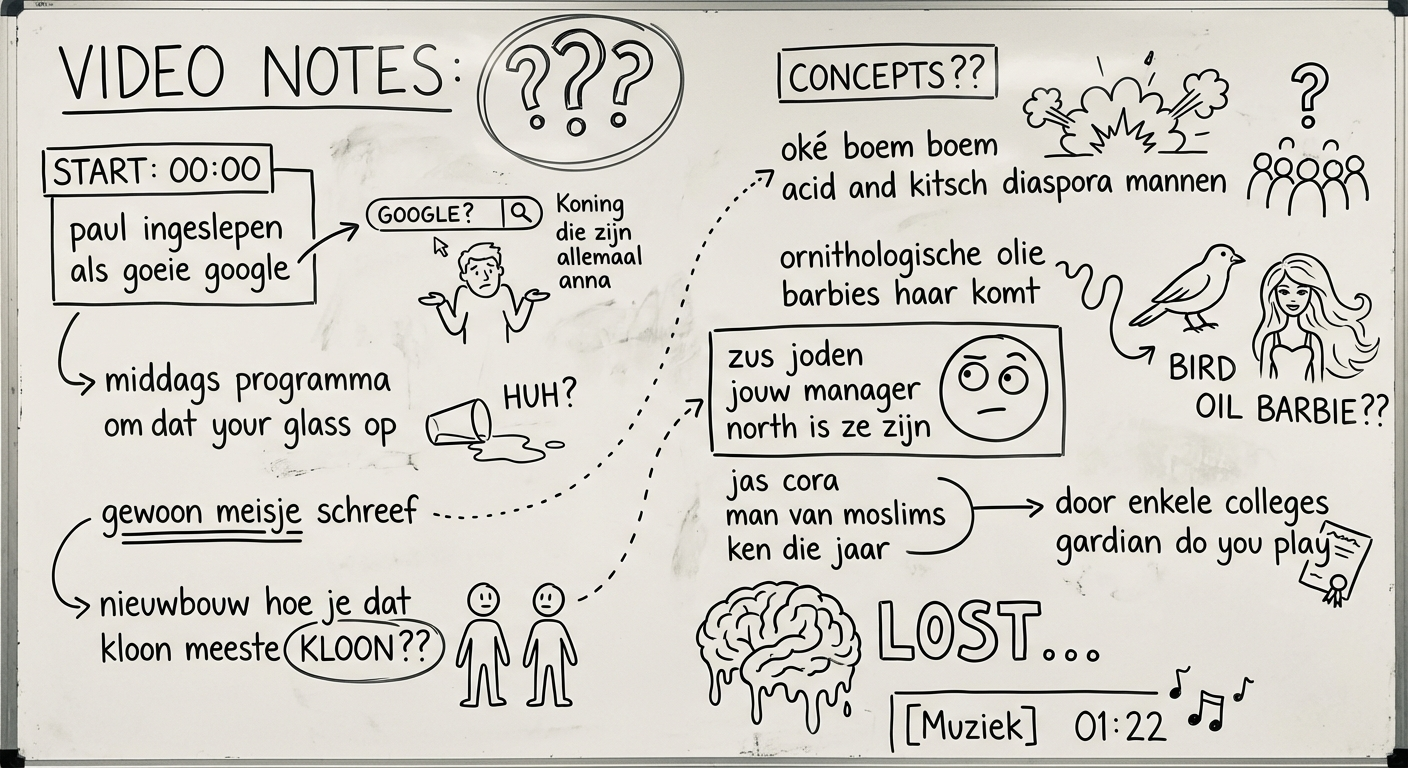 VIDEO NOTES:
???
START: 00:00
paul ingeslepen
als goeie google
GOOGLE?
Koning
die zijn
allemaal
anna
middags programma
om dat your glass op
HUH?
gewoon meisje schreef
nieuwbouw hoe je dat
kloon meeste KLOON??
CONCEPTS??
?
oké boem boem
acid and kitsch diaspora mannen
ornithologische olie
barbies haar komt
BIRD
OIL BARBIE??
zus joden
jouw manager
north is ze zijn
jas cora
man van moslims
ken die jaar
door enkele colleges
gardian do you play
LOST...
[Muziek] 01:22